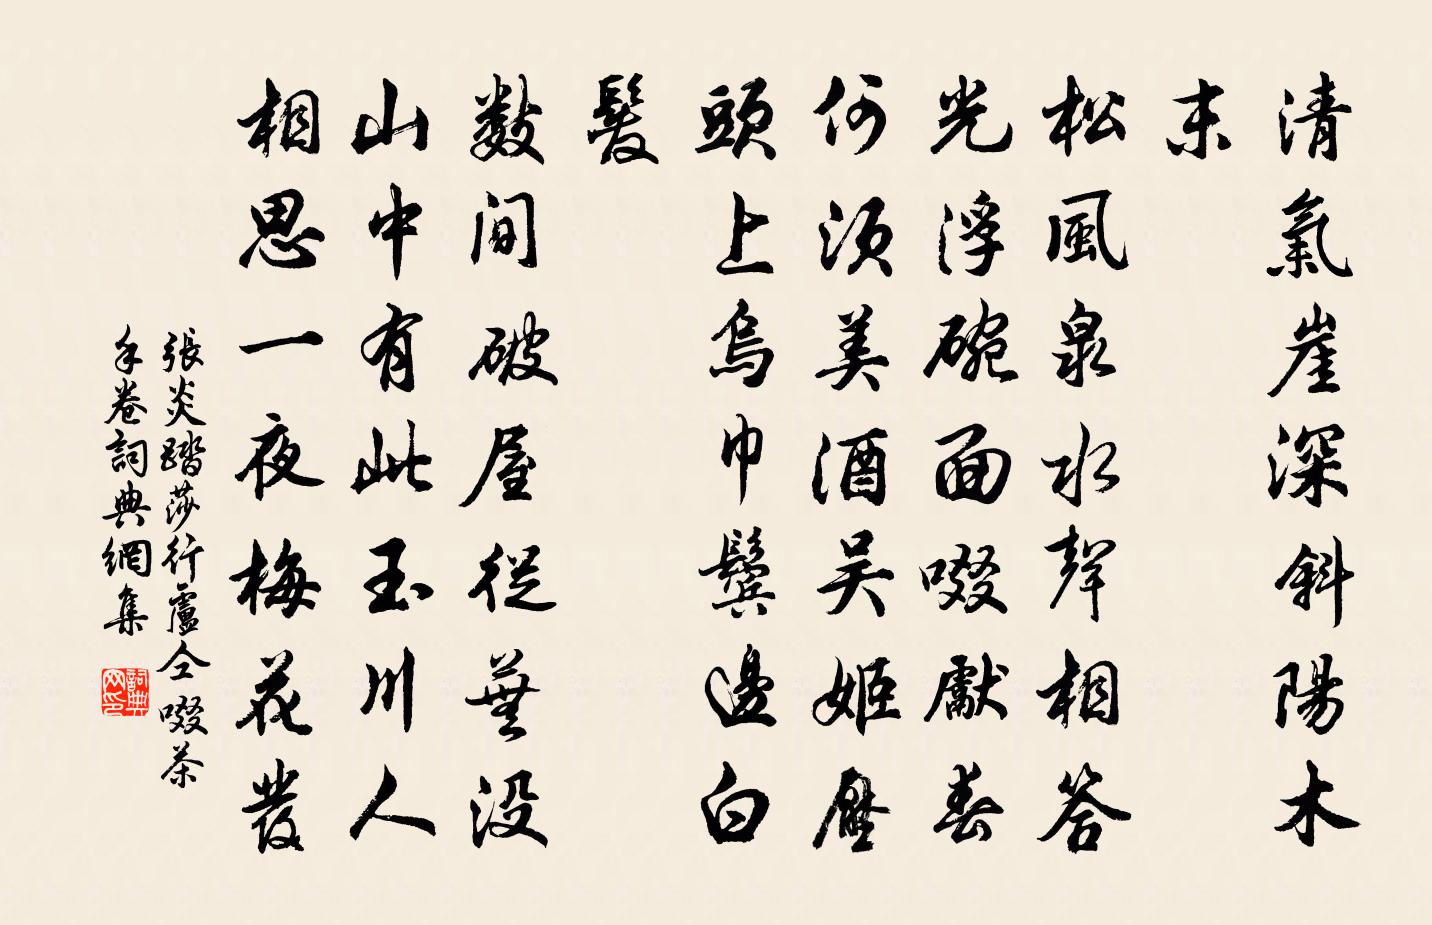 清氣崖深斜陽木
末
松風泉水聲相答
光浮碗面啜獻春
何須美酒吳姬壓
頭上烏巾鬢邊白
髮
數間破屋從蕪沒
山中有此玉川人
相思一夜梅花發
張炎踏莎行盧仝啜茶
手卷詞典網集
詞典
网印